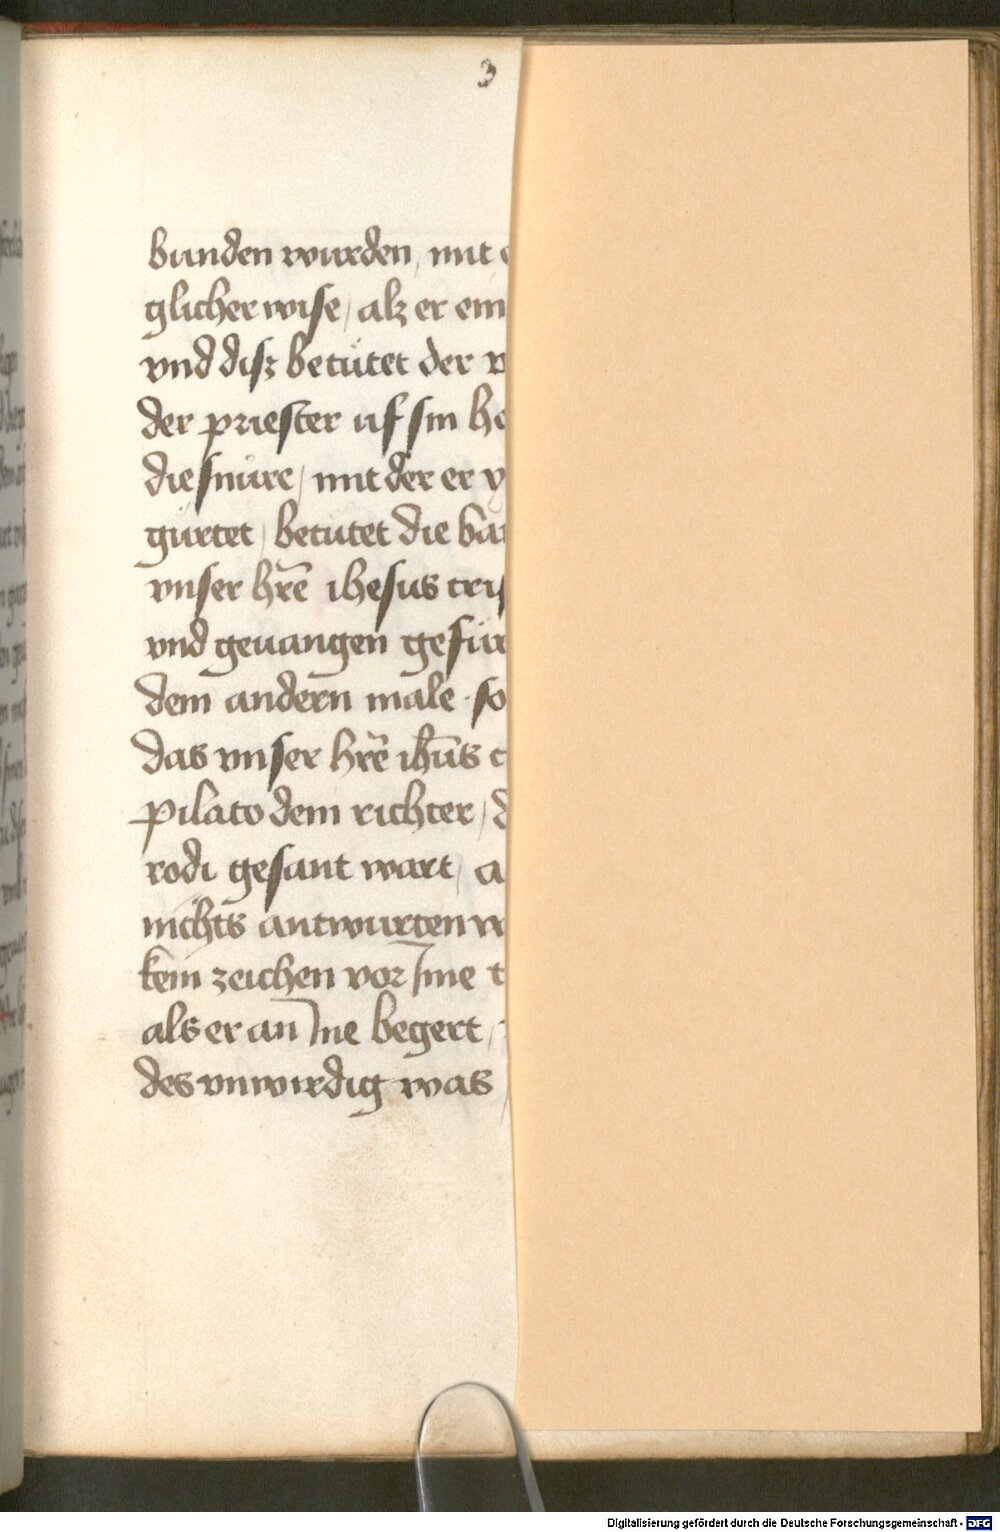 3
bunden wurden / mit
glicher wise / alz er ein
vnd disz betútet der
der priester uf sin
die snůre / mit der er
gúrtet / betútet die
vnser hr̄e ihesus
vnd geuangen
dem andern male · so
das vnser hr̄e ih̄us
pilato dem richter /
rodi gesant wart /
nichts antwurten
kein zeichen vor Jme
als er an Jne begert /
des vnwirdig was /
Digitalisierung gefördert durch die Deutsche Forschungsgemeinschaft - DFG